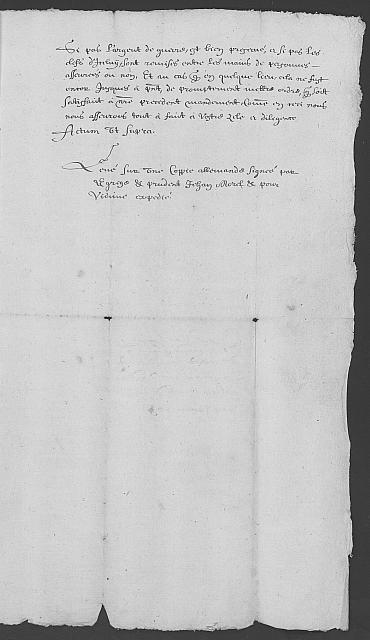 Si pas l'argent de guerre, est bien preserve, et se pas les
clefs d'iceluy, sont remises entre les mains de personnes
asseurées ou non, Et au cas q̃ en quelque lieu cela ne fust
encor Jusques à pñt, de promptement mettre ordre q̃ soit
satisfait à nr̃e precedent mandement, Com̃e en ceci nous
nous asseurons tout à fait à Vostre Zele et diligence
Actum Ut supra.
Levé sur une Copie allemande signée par
et prudent Jehan Morel et pour
Vidimé expedié